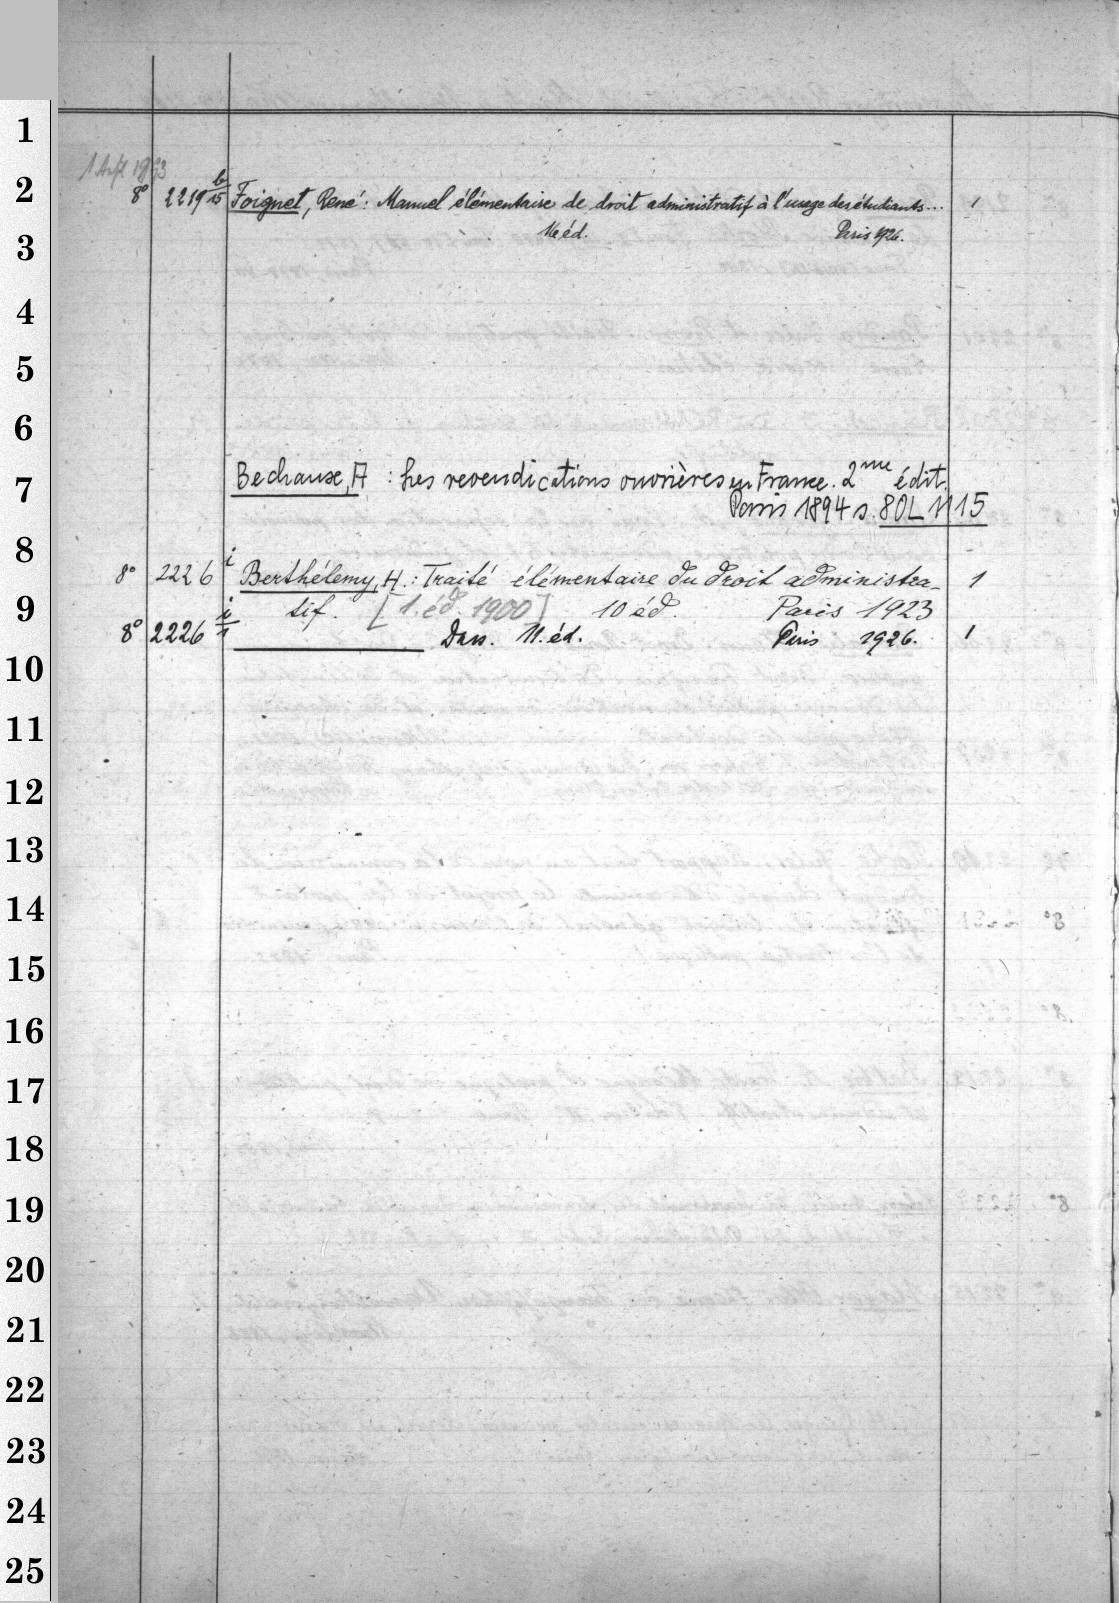 1
2
8° 2219 b/15 Foignet, René: Manuel élémentaire de droit administratif à l'usage des étudiants... 1
3
11e éd. Paris 1926.
4
5
6
7
Bechaux, A : Les revendications ouvrières en France. 2me édit.
Paris 1894 s. 8OL 1115
8
8° 2226 i Berthélemy, H.: Traité élémentaire du droit administra- 1
9
tif. [1. éd. 1900] 10 éd. Paris 1923
8° 2226 i/1 Dass. 11. éd. Paris 1926. 1
10
11
12
13
14
15
16
17
18
19
20
21
22
23
24
25